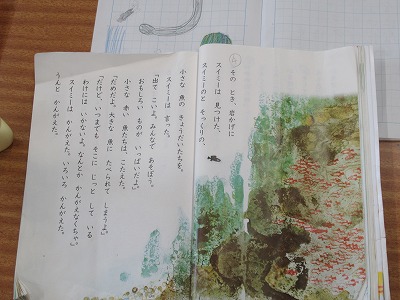 その とき、岩かげに
スイミーは 見つけた、
スイミーのと そっくりの、
小さな 魚の きょうだいたちを。
スイミーは 言った。
「出て こいよ。みんなで あそぼう。
おもしろい ものが いっぱいだよ。」
小さな 赤い 魚たちは、こたえた。
「だめだよ。大きな 魚に たべられて しまうよ。」
「だけど、いつまでも そこに じっと して いる
わけには いかないよ。なんとか かんがえなくちゃ。」
スイミーは かんがえた。いろいろ かんがえた。
うんと かんがえた。